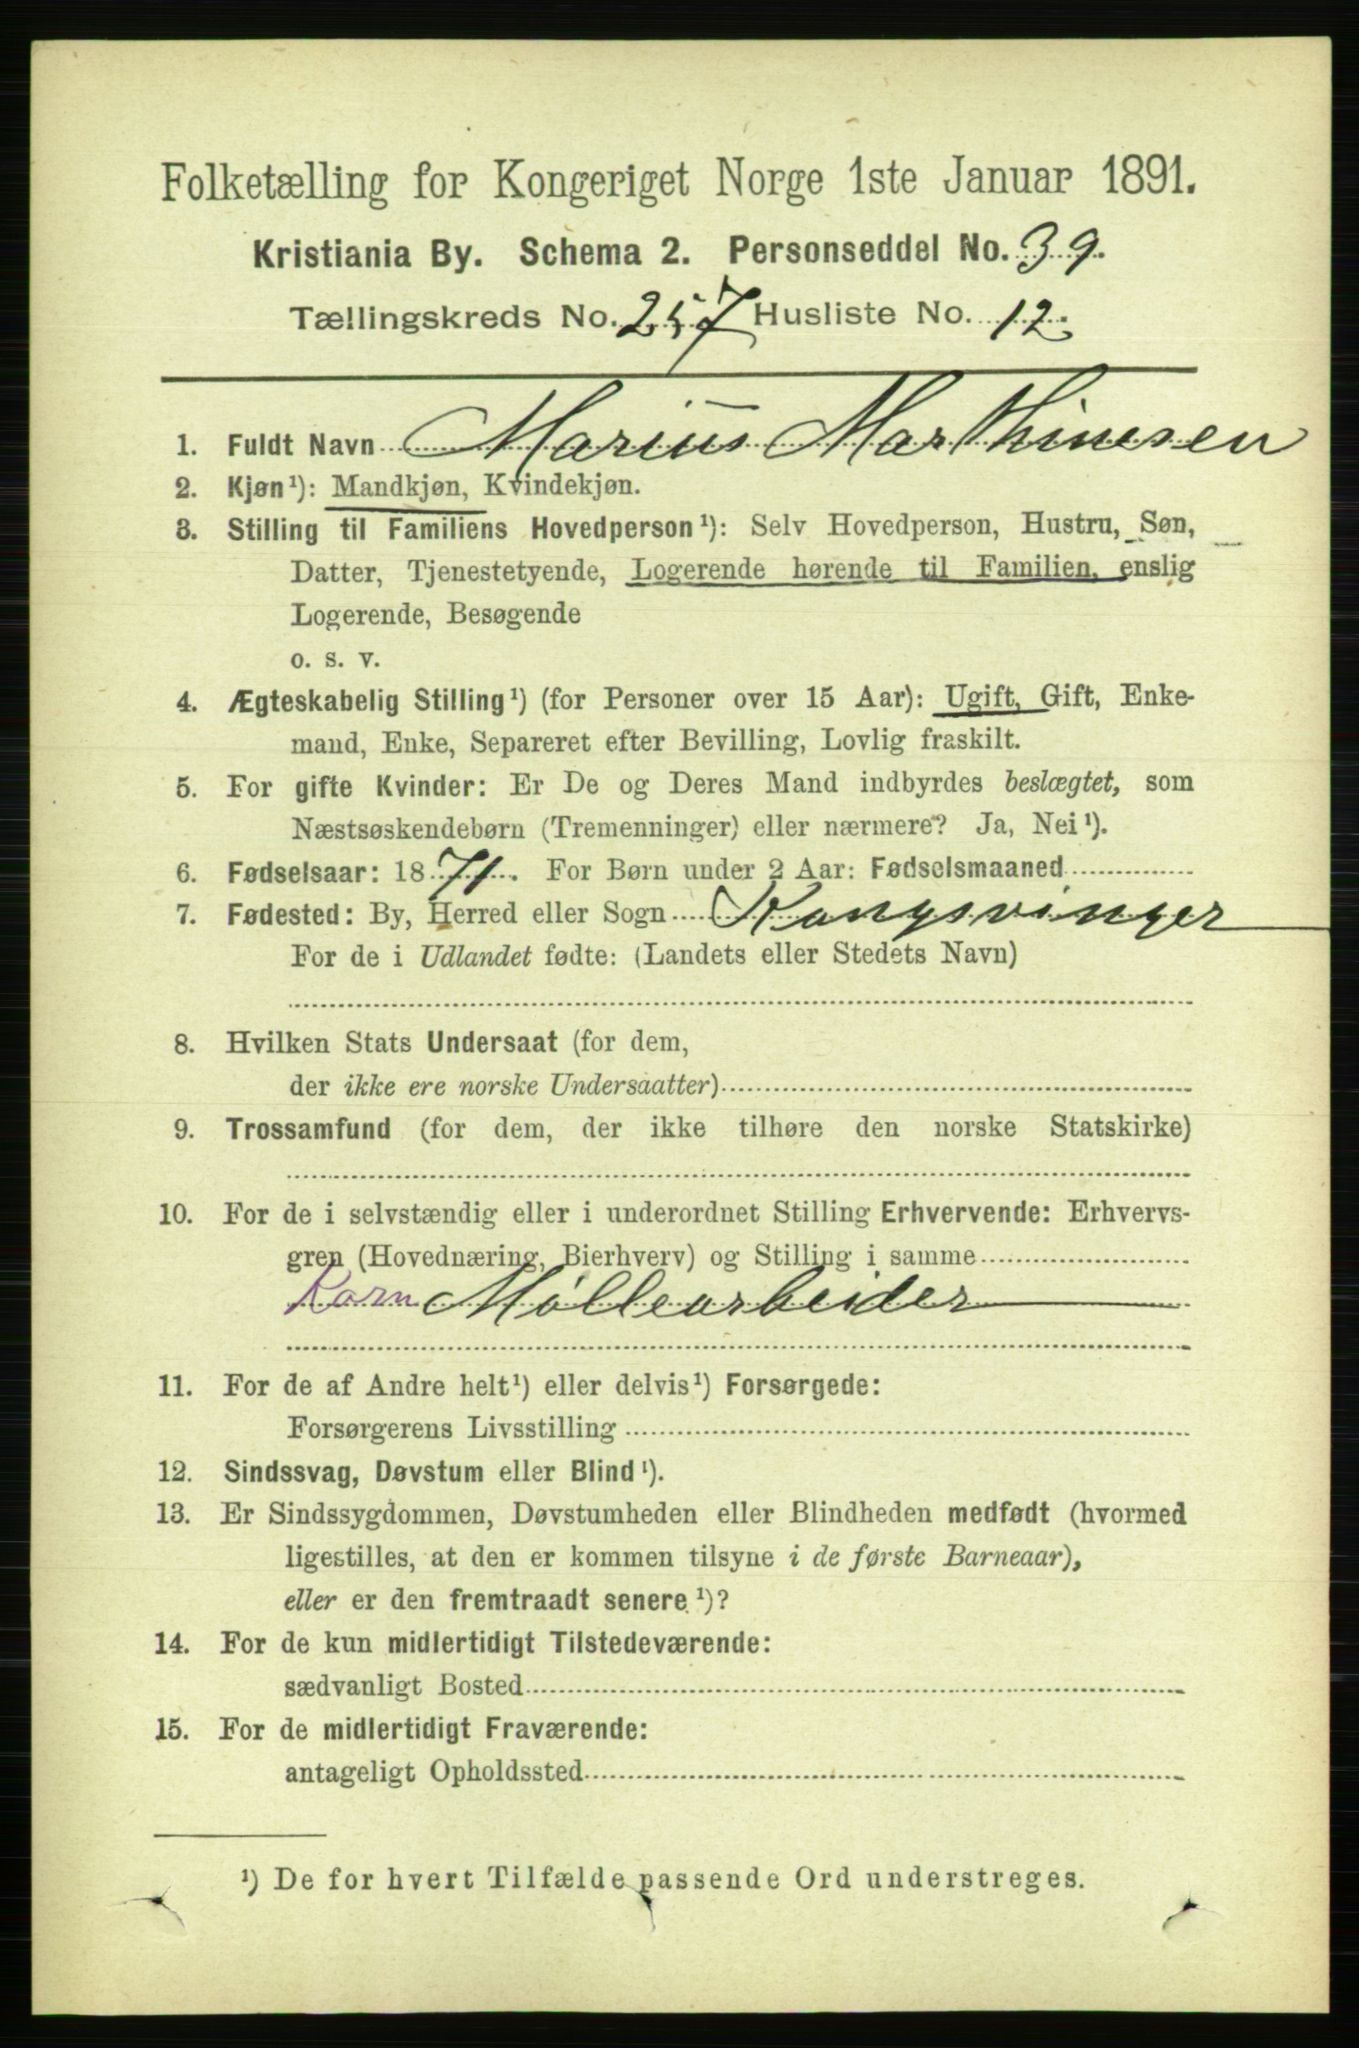 Folketælling for Kongeriget Norge 1ste Januar 1891.
Kristiania By. Schema 2. Personseddel No. 39.
Tællingskreds No. 257 Husliste No. 12.
1. Fuldt Navn Marius Marthinesen
2. Kjøn¹): Mandkjøn, Kvindekjøn.
3. Stilling til Familiens Hovedperson¹): Selv Hovedperson, Hustru, Søn,
Datter, Tjenestetyende, Logerende hørende til Familien, enslig
Logerende, Besøgende
o. s. v.
4. Ægteskabelig Stilling¹) (for Personer over 15 Aar): Ugift, Gift, Enke-
mand, Enke, Separeret efter Bevilling, Lovlig fraskilt.
5. For gifte Kvinder: Er De og Deres Mand indbyrdes beslægtet, som
Næstsøskendebørn (Tremenninger) eller nærmere? Ja, Nei¹).
6. Fødselsaar: 1871. For Børn under 2 Aar: Fødselsmaaned
7. Fødested: By, Herred eller Sogn Kongsvinger
For de i Udlandet fødte: (Landets eller Stedets Navn)
8. Hvilken Stats Undersaat (for dem,
der ikke ere norske Undersaatter)
9. Trossamfund (for dem, der ikke tilhøre den norske Statskirke)
10. For de i selvstændig eller i underordnet Stilling Erhvervende: Erhvervs-
gren (Hovednæring, Bierhverv) og Stilling i samme
Korn Møllearbeider
11. For de af Andre helt¹) eller delvis¹) Forsørgede:
Forsørgerens Livsstilling
12. Sindssvag, Døvstum eller Blind¹).
13. Er Sindssygdommen, Døvstumheden eller Blindheden medfødt (hvormed
ligestilles, at den er kommen tilsyne i de første Barneaar),
eller er den fremtraadt senere¹)?
14. For de kun midlertidigt Tilstedeværende:
sædvanligt Bosted
15. For de midlertidigt Fraværende:
antageligt Opholdssted
¹) De for hvert Tilfælde passende Ord understreges.